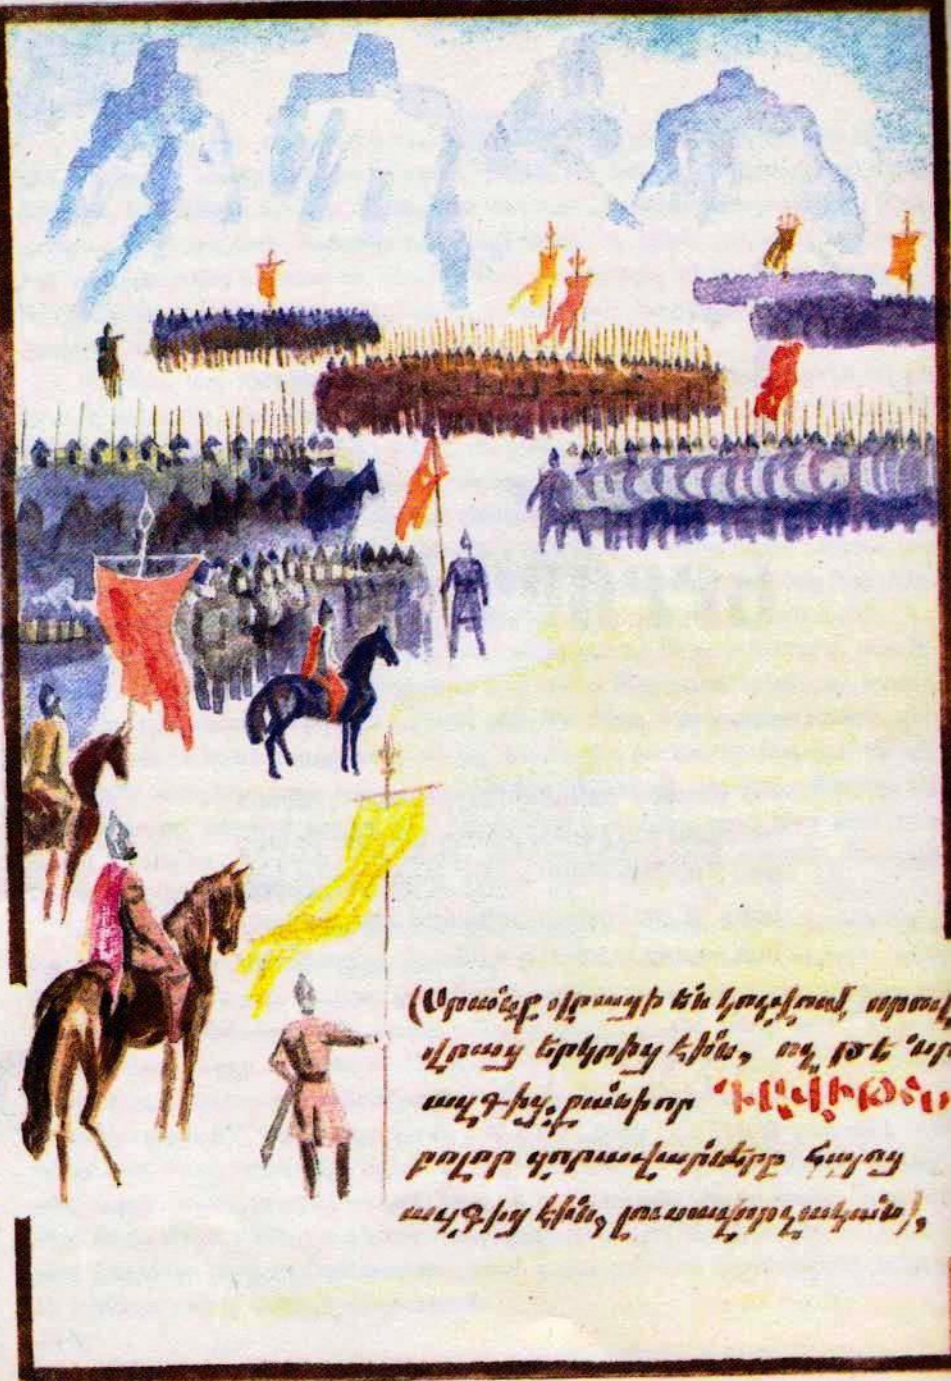 (Սրանք վրացի են կոչվում որով
վրաց երկրից էին, ոչ թե նր
ազգից, քանի որ ԴԱՎԻԹՆ
բոլոր զորավարները հայոց
ազգից էին՝ լուսավորչական)։